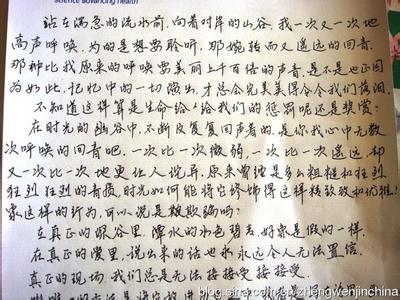 science advancing health
站在湍急的流水前，向着对岸的山谷，我一次又一次地
高声呼唤，为的是想要聆听，那婉转而又遥远的回音，
那种比我原来的呼唤要美丽上千百倍的声音，是不是也正因
为如此，记忆中的一切演出，才总会完美得令令我们落泪，
不知道这样算是生命给我们的惩罚呢还是奖赏：
在时光的幽谷中，不断反复复回声着的，是你我心中无数
次呼唤的回音吧，一次比一次微弱，一次比一次遥远，却
又一次比一次地更让人恍异，原来曾经是多么粗糙和狂烈
狂烈的音质，时光如何能将它修饰得这样精致
家这样的行为，可以说是欺欺骗吗：
在真正的溪谷里，潭水的水色碧去好象是假的一样，
在真正的爱里，说出来的话也永永远令人无法置信，
真正的现场，我们总是无法接接受接接受，
blog.sina.com.cn/zhengwenjinchina